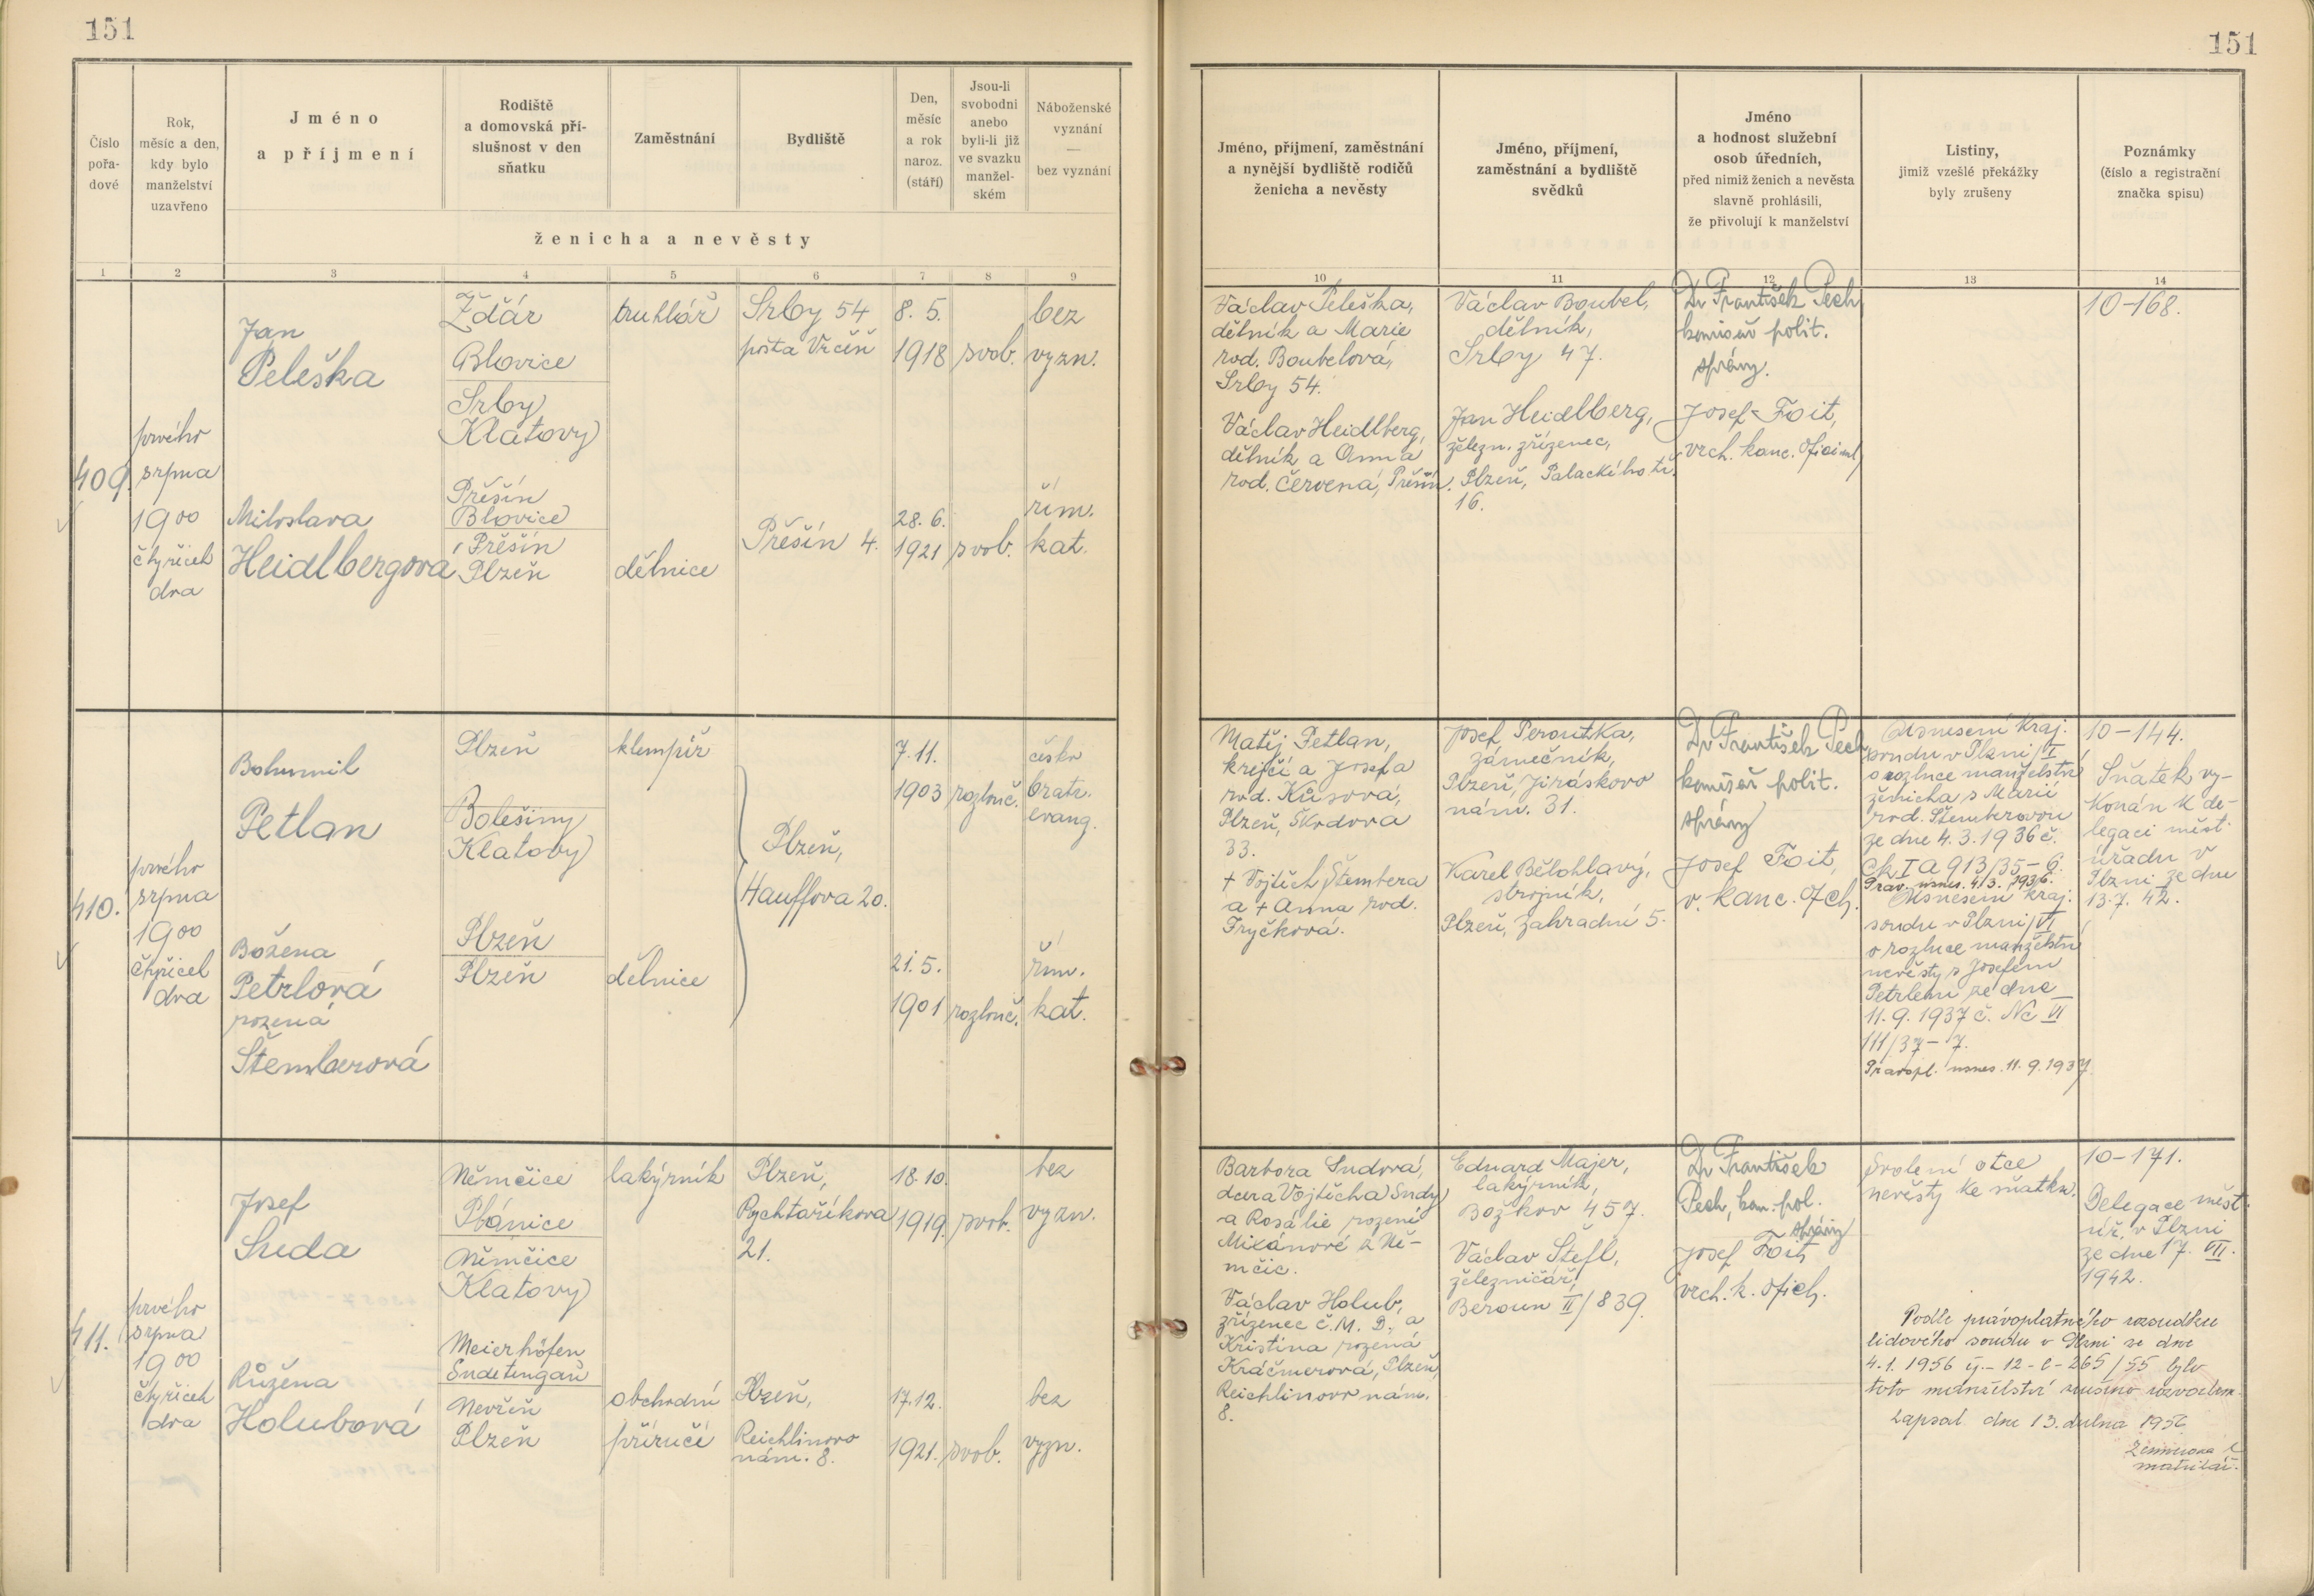 151
151
Číslo
pořa-
dové
Rok,
měsíc a den,
kdy bylo
manželství
uzavřeno
Jméno
a příjmení
Rodiště
a domovská pří-
slušnost v den
sňatku
Zaměstnání
Bydliště
Den,
měsíc
a rok
naroz.
(stáří)
Jsou-li
svobodni
anebo
byli-li již
ve svazku
manžel-
ském
Náboženské
vyznání
—
bez vyznání
ženicha a nevěsty
Jméno, příjmení, zaměstnání
a nynější bydliště rodičů
ženicha a nevěsty
Jméno, příjmení,
zaměstnání a bydliště
svědků
Jméno
a hodnost služební
osob úředních,
před nimiž ženich a nevěsta
slavně prohlásili,
že přivolují k manželství
Listiny,
jimiž vzešlé překážky
byly zrušeny
Poznámky
(číslo a registrační
značka spisu)
1 2 3 4 5 6 7 8 9
10 11 12 13 14
409.
prvého
srpna
1900
čtyřicet
dva
Jan
Peleška
Ždár
Blovice
Srby
Klatovy
truhlář
Srby 54
pošta Vrčeň
8. 5.
1918
svob.
bez
vyzn.
Miloslava
Heidlbergova
Přěšín
Blovice
Přěšín
Plzeň
dělnice
Přešín 4.
28. 6.
1921
svob.
řím.
kat.
Václav Peleška,
dělník a Marie
rod. Boubelová,
Srby 54.
Václav Heidlberg,
dělník a Anna
rod. Červená, Přešín.
Václav Boubel,
dělník,
Srby 47.
Jan Heidlberg,
železn. zřízenec,
Plzeň, Palackého tř.
16.
Dr František Pech
komisař polit.
správy.
Josef Foit,
vrch. kanc. oficial
10-168.
410.
prvého
srpna
1900
čtyřicet
dva
Bohumil
Petlan
Plzeň
Bolešiny
Klatovy
klempíř
Plzeň,
Hauffova 20.
7. 11.
1903
rozlouč.
česko
bratr.
evang.
Božena
Petrlová
rozená
Štemberová
Plzeň
Plzeň
dělnice
21. 5.
1901
rozlouč.
řím.
kat.
Matěj Petlan,
krejčí a Josefa
rod. Kůsová,
Plzeň, Škodova
33.
+ Vojtěch Štembera
a + Anna rod.
Fryčková.
Josef Peroutka,
zámečník,
Plzeň, Jiráskovo
nám. 31.
Karel Bělohlavý,
strojník,
Plzeň, Zahradní 5.
Dr František Pech
komisař polit.
správy
Josef Foit,
v. kanc. ofch.
Usnesení kraj.
soudu v Plzni/I
o rozluce manželství
ženicha s Marií
rod. Štemberovou
ze dne 4. 3. 1936 č.
Ck I a 913/35-6.
Prav. usnes. 4/3. 1936.
Usnesení kraj.
soudu v Plzni/VI
o rozluce manželství
nevěsty s Josefem
Petrlem ze dne
11. 9. 1937 č. Nc VI
111/37-7.
Pravopl. usnes. 11. 9. 1937.
10-144.
Sňatek vy-
konán k de-
legaci měst.
úřadu v
Plzni ze dne
13. 7. 42.
411.
prvého
srpna
1900
čtyřicet
dva
Josef
Suda
Němčice
Plánice
Němčice
Klatovy
lakýrník
Plzeň,
Rychtaříkova
21.
18. 10.
1919.
svob.
bez
vyzn.
Růžena
Holubová
Meierhöfen
Sudetengau
Nevřeň
Plzeň
obchodní
příručí
Plzeň,
Reichlinovo
nám. 8.
17. 12.
1921.
svob.
bez
vyzn.
Barbora Sudová,
dcera Vojtěcha Sudy
a Rosálie rozené
Mixánové z Ně-
mčic.
Václav Holub,
zřízenec Č. M. D. a
Kristina rozená
Kráčmerová, Plzeň,
Reichlinovo nám.
8.
Eduard Majer,
lakýrník,
Božkov 457.
Václav Štefl,
železničář,
Beroun II/839.
Dr František
Pech, kom. pol.
správy
Josef Foit,
vrch. k. ofich.
Svolení otce
nevěsty ke sňatku.
10-171.
Delegace měst.
úř. v Plzni
ze dne 17. VII.
1942.
Podle právoplatného rozsudku
lidového soudu v Plzni ze dne
4. 1. 1956 čj.- 12-C-265/55 bylo
toto manželství zrušeno rozvodem.
Zapsal dne 13. dubna 1956.
matrikář.